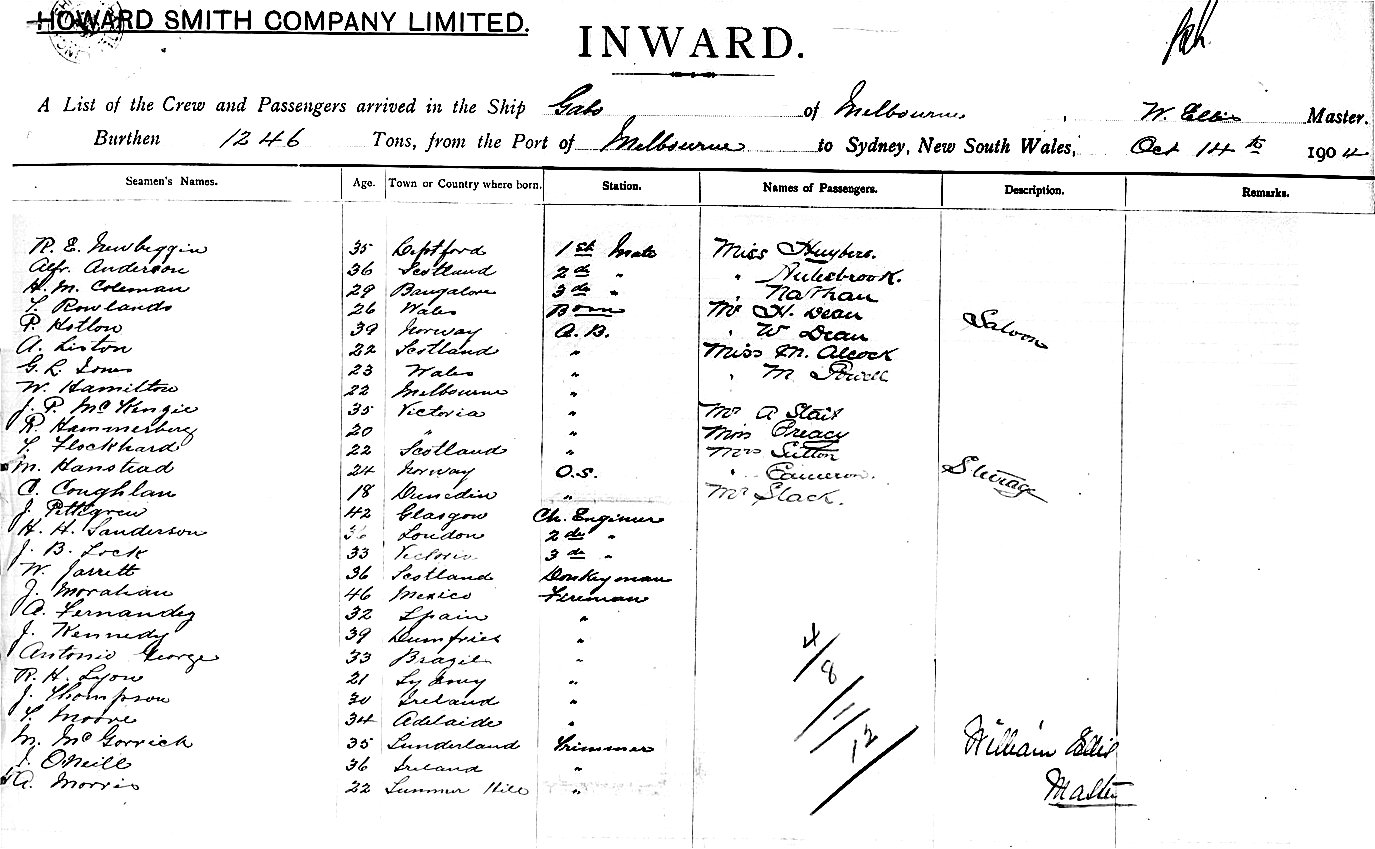 HOWARD SMITH COMPANY LIMITED.
INWARD.
A List of the Crew and Passengers arrived in the Ship Gabo of Melbourne, W. Ellis Master.
Burthen 1246 Tons, from the Port of Melbourne to Sydney, New South Wales, Oct 14th 1904
Seamen's Names. Age. Town or Country where born. Station. Names of Passengers. Description. Remarks.
R. E. Newbeggin 35 Deptford 1st Mate Miss Huybers.
Alfr. Anderson 36 Scotland 2d " "
H. M. Coleman 29 Bangalore 3d " " Nathan
T. Rowlands 26 Wales Bosn Mr H. Dean Saloon
P. Hotlon 39 Norway A.B. " W Dean
A. Liston 22 Scotland " Miss M. Alcock
G. L. Jones 23 Wales " " M Powell
W. Hamilton 22 Melbourne "
J. P. McKenzie 35 Victoria " Mr A Slait
R. Hammerberg 20 " " Miss Preacy
T. Flockhard 22 Scotland " Mrs Sutton
M. Hanstad 24 Norway O.S. " Cameron. Steerage
C. Coughlan 18 Dunedin " Mr Slack.
J. Pettigrew 42 Glasgow Ch. Engineer
H. H. Sanderson 36 London 2d "
J. B. Lock 33 Victoria 3d "
W. Jarrett 36 Scotland Donkeyman
J. Morahan 46 Mexico Fireman
A. Fernandez 32 Spain "
J. Kennedy 39 Dumfries "
Antonio George 33 Brazil "
R. H. Lyon 21 Sydney "
J. Thompson 30 Ireland "
T. Moore 34 Adelaide "
M. McGorrick 35 Sunderland Trimmer
J. O'Neill 36 Ireland "
A. Morris 22 Summer Hill "
4/8/11/12
William Ellis
Master